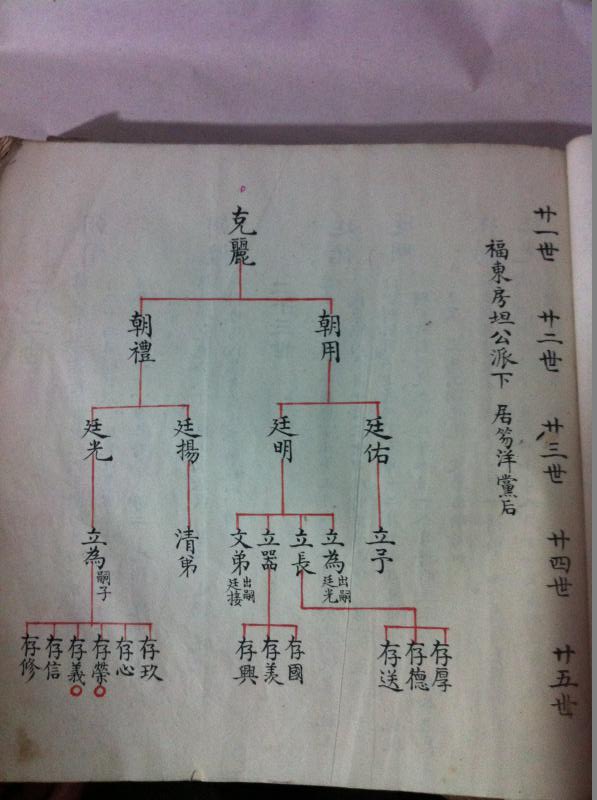 廿一世
廿二世
廿三世
廿四世
廿五世
福東房坦公派下 居笏洋黨后
克麗
朝用
朝禮
廷佑
廷明
廷揚
廷光
立予
立為 出嗣廷光
立長
立器
文弟 出嗣廷接
清弟
立為 嗣子
存厚
存德
存送
存國
存羨
存興
存玖
存心
存榮
存義
存信
存修